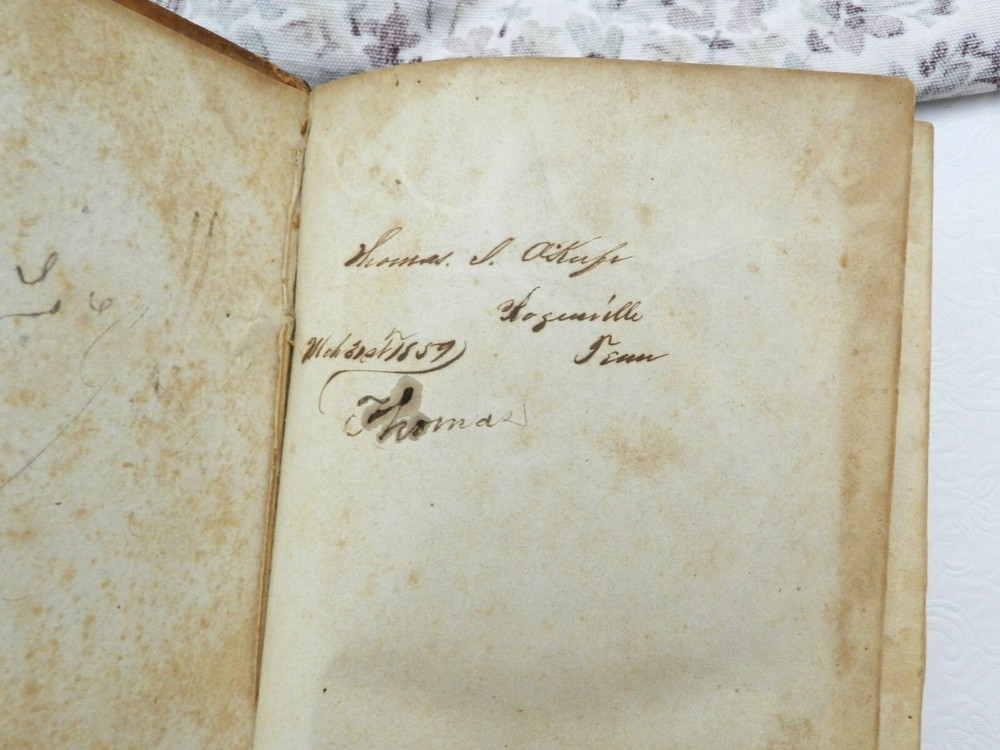 Thomas. S. O'Keefe
Rogersville
Mch 31st 1859
Tenn
Thomas